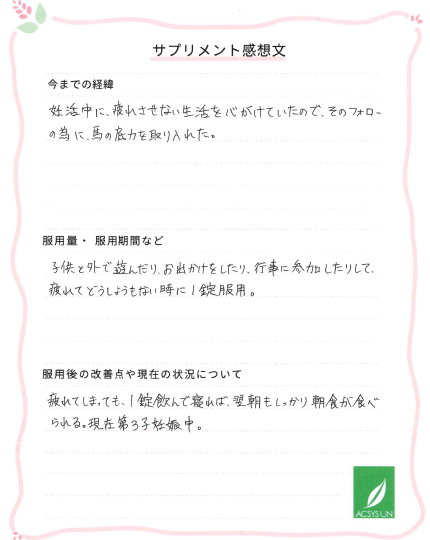 サプリメント感想文
今までの経緯
妊活中に、疲れさせない生活を心がけていたので、そのフォロー
の為に、馬の底力を取り入れた。
服用量・ 服用期間など
子供と外で遊んだり、お出かけをしたり、行事に参加したりして、
疲れてどうしようもない時に1錠服用。
服用後の改善点や現在の状況について
疲れてしまっても、1錠飲んで寝れば、翌朝もしっかり朝食が食べ
られる。現在第3子妊娠中。
ACSYSUN